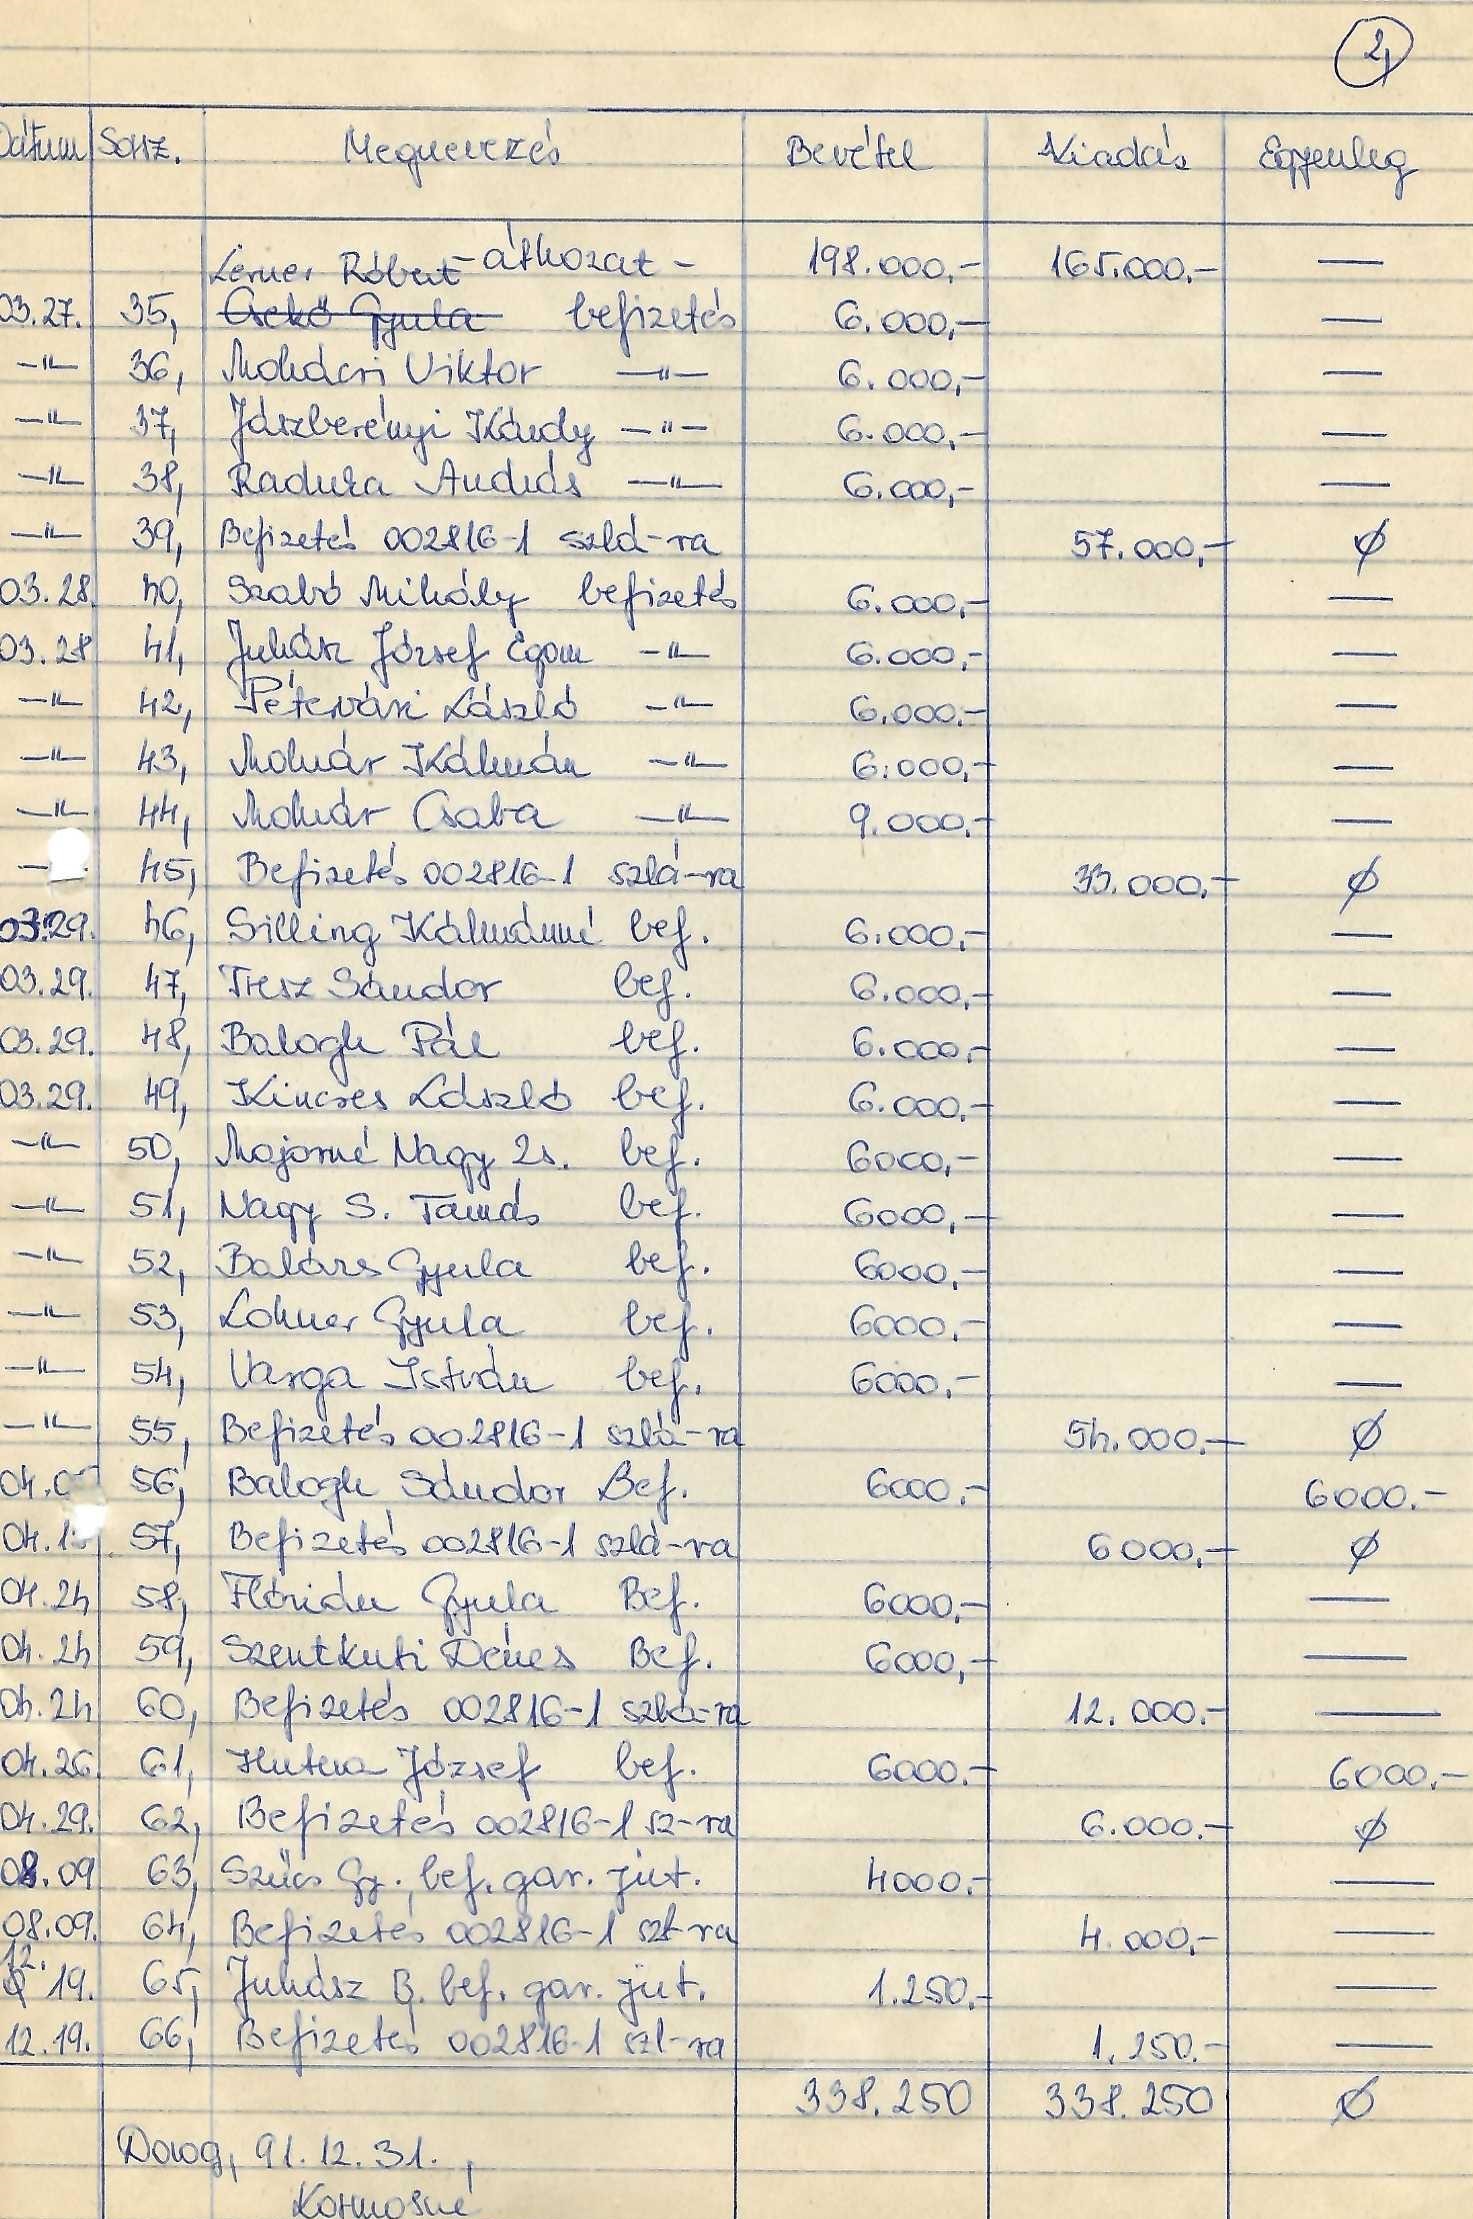 2,
Dátum Sorsz. Megnevezés Bevétel Kiadás Egyenleg
- áthozat - 198.000,- 165.000,- —
Lerner Róbert
03.27. 35, Csekő Gyula befizetés 6.000,- —
-"- 36, Mohácsi Viktor -"- 6.000,- —
-"- 37, Jászberényi Károly -"- 6.000,- —
-"- 38, Radnra András -"- 6.000,- —
-"- 39, Befizetés 002816-1 szlá-ra 57.000,- ∅
03.28. 40, Szabó Mihály befizetés 6.000,- —
03.28 41, Juhász József Egom -"- 6.000,- —
-"- 42, Pétervári László -"- 6.000.- —
-"- 43, Molnár Kálmán -"- 6.000,- —
-"- 44, Molnár Csaba -"- 9.000.- —
- 45, Befizetés 002816-1 szlá-ra 33.000,- ∅
03.29. 46, Silling Kálmánné bef. 6.000,- —
03.29. 47, Tresz Sándor bef. 6.000,- —
03.29. 48, Balogh Pál bef. 6.000.- —
03.29. 49, Kincses László bef. 6.000.- —
-"- 50, Majorné Nagy Zs. bef. 6000,- —
-"- 51, Nagy S. Tamás bef. 6000,- —
-"- 52, Balázs Gyula bef. 6000,- —
-"- 53, Lohner Gyula bef. 6000.- —
-"- 54, Varga István bef. 6000,- —
-"- 55, Befizetés 002816-1 szlá-ra 54.000.- ∅
04.0 56, Balogh Sándor Bef. 6000.- 6000.-
04.1 57, Befizetés 002816-1 szlá-ra 6000,- ∅
04.24 58, Flórián Gyula Bef. 6000,- —
04.24 59, Szentkuti Dénes Bef. 6000,- —
04.24 60, Befizetés 002816-1 szlá-ra 12.000.- —
04.26. 61, Hutera József bef. 6000.- 6000.-
04.29. 62, Befizetés 002816-1 sz-ra 6.000.- ∅
08.09 63, Szűcs Gy. bef. gar. jut. 4000.- —
08.09. 64, Befizetés 002816-1 szl-ra 4.000,- —
12. 19. 65, Juhász B. bef. gar. jut. 1.250.- —
12.19. 66, Befizetés 002816-1 szl-ra 1.250.- —
338.250 338.250 ∅
Dorog, 91.12.31.,
Kormosné